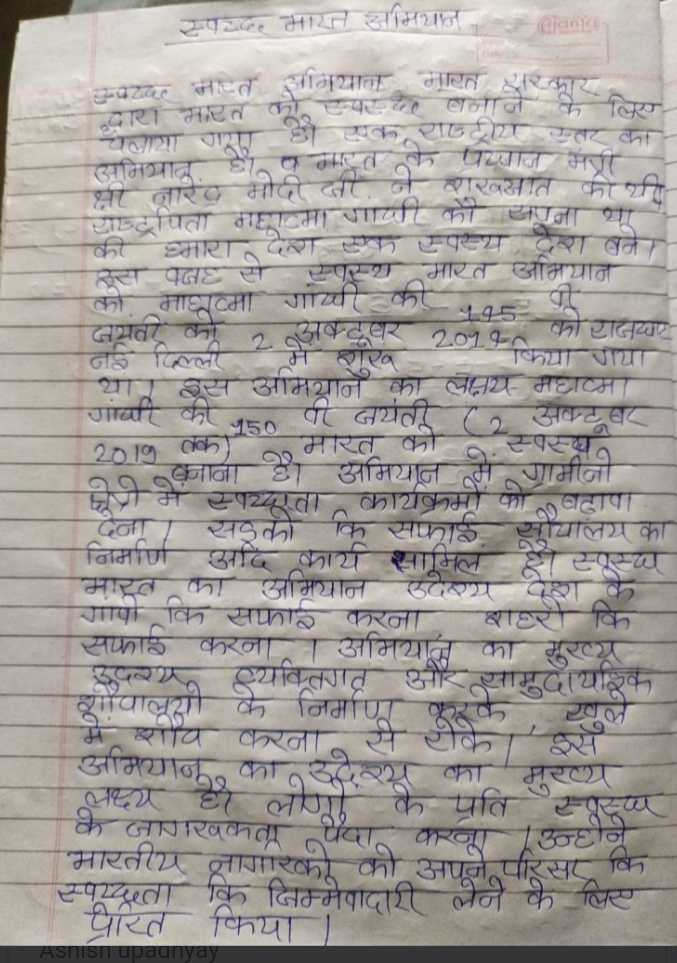 स्वच्छ भारत अभियान
स्वच्छ भारत अभियान भारत सरकार
द्वारा भारत को स्वस्छ बनाने के लिए
चलाया गया है। एक राष्ट्रीय स्तर का
अभियान है। व भारत के प्रधान मंत्री
श्री नारेंद्र मोदी जी ने शुरुआत की थी
राष्ट्रपिता महात्मा गांधी को सपना था
की हमारा देश एक स्वस्थ देश बने।
इस वजह से स्वस्थ भारत अभियान
को माहात्मा गांधी की 145 वी
जयंती को 2 अक्टूबर 2014 को राजघाट
नई दिल्ली में शुरू किया गया
था। इस अभियान का लक्ष्य महात्मा
गांधी की 150 वी जयंती (2 अक्टूबर
2019 तक) भारत को स्वस्थ
बनाना है। अभियान में ग्रामीनो
क्षेत्रो में स्वच्छता कार्यक्रमों को बढ़ावा
देना। सड़को कि सफाई सौचालय का
निर्माण आदि कार्य सामिल है। स्वस्छ
भारत का अभियान उदेश्य देश के
गावो कि सफाई करना शहरो कि
सफाई करना। अभियान का मुख्य
उदेश्य व्यक्तिगत और सामुदायिक
शौचालयो के निर्माण करके खुले
में शौच करना से रोके। इस
अभियान का उदेश्य का मुख्य
लक्ष्य है। लोगो के प्रति स्वस्छ
के जागरुकता पैदा करना। उन्होंने
भारतीय नागरिको को अपने परिसर कि
स्वच्छता कि जिम्मेवादारी लेने के लिए
प्रेरित किया।
Ashish upadhyay